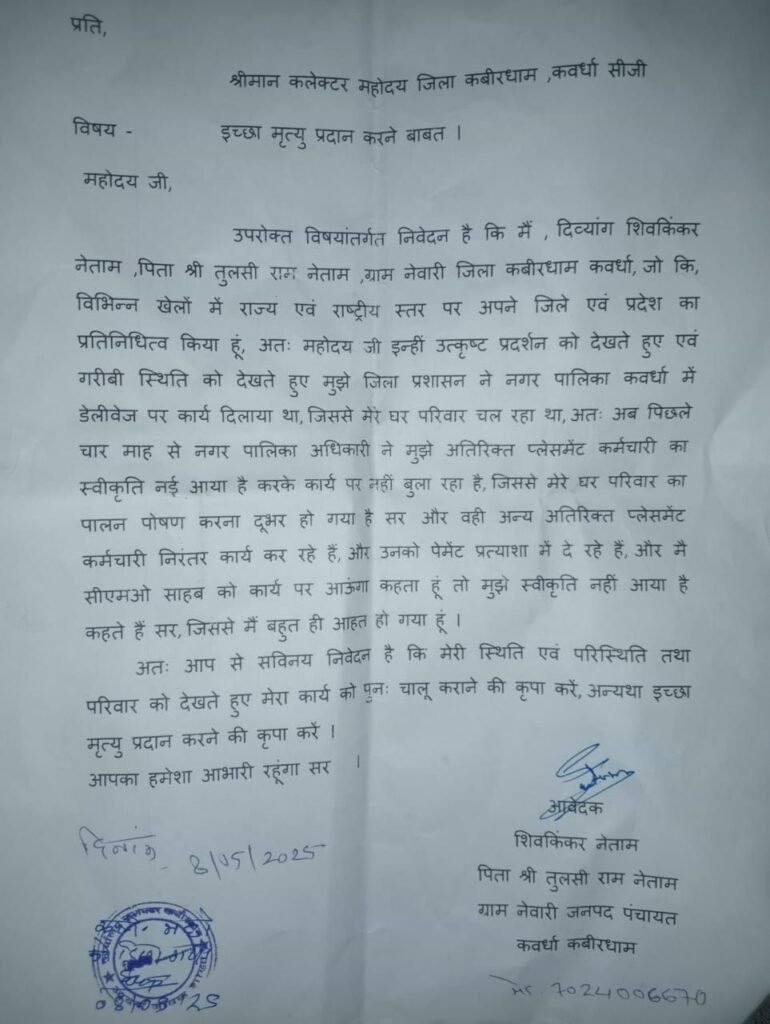 प्रति,
श्रीमान कलेक्टर महोदय जिला कबीरधाम ,कवर्धा सीजी
विषय - इच्छा मृत्यु प्रदान करने बाबत ।
महोदय जी,
उपरोक्त विषयांतर्गत निवेदन है कि मैं , दिव्यांग शिवकिंकर
नेताम ,पिता श्री तुलसी राम नेताम ,ग्राम नेवारी जिला कबीरधाम कवर्धा, जो कि,
विभिन्न खेलों में राज्य एवं राष्ट्रीय स्तर पर अपने जिले एवं प्रदेश का
प्रतिनिधित्व किया हूं, अतः महोदय जी इन्हीं उत्कृष्ट प्रदर्शन को देखते हुए एवं
गरीबी स्थिति को देखते हुए मुझे जिला प्रशासन ने नगर पालिका कवर्धा में
डेलीवेज पर कार्य दिलाया था, जिससे मेरे घर परिवार चल रहा था, अतः अब पिछले
चार माह से नगर पालिका अधिकारी ने मुझे अतिरिक्त प्लेसमेंट कर्मचारी का
स्वीकृति नई आया है करके कार्य पर नहीं बुला रहा है, जिससे मेरे घर परिवार का
पालन पोषण करना दूभर हो गया है सर और वही अन्य अतिरिक्त प्लेसमेंट
कर्मचारी निरंतर कार्य कर रहे हैं, और उनको पेमेंट प्रत्याशा में दे रहे हैं, और मै
सीएमओ साहब को कार्य पर आऊंगा कहता हूं तो मुझे स्वीकृति नहीं आया है
कहते हैं सर, जिससे मैं बहुत ही आहत हो गया हूं ।
अतः आप से सविनय निवेदन है कि मेरी स्थिति एवं परिस्थिति तथा
परिवार को देखते हुए मेरा कार्य को पुनः चालू कराने की कृपा करें, अन्यथा इच्छा
मृत्यु प्रदान करने की कृपा करें ।
आपका हमेशा आभारी रहूंगा सर ।
आवेदक
शिवकिंकर नेताम
पिता श्री तुलसी राम नेताम
ग्राम नेवारी जनपद पंचायत
कवर्धा कबीरधाम
मो. 7024006670
दिनांक - 8/05/2025
08/05/25